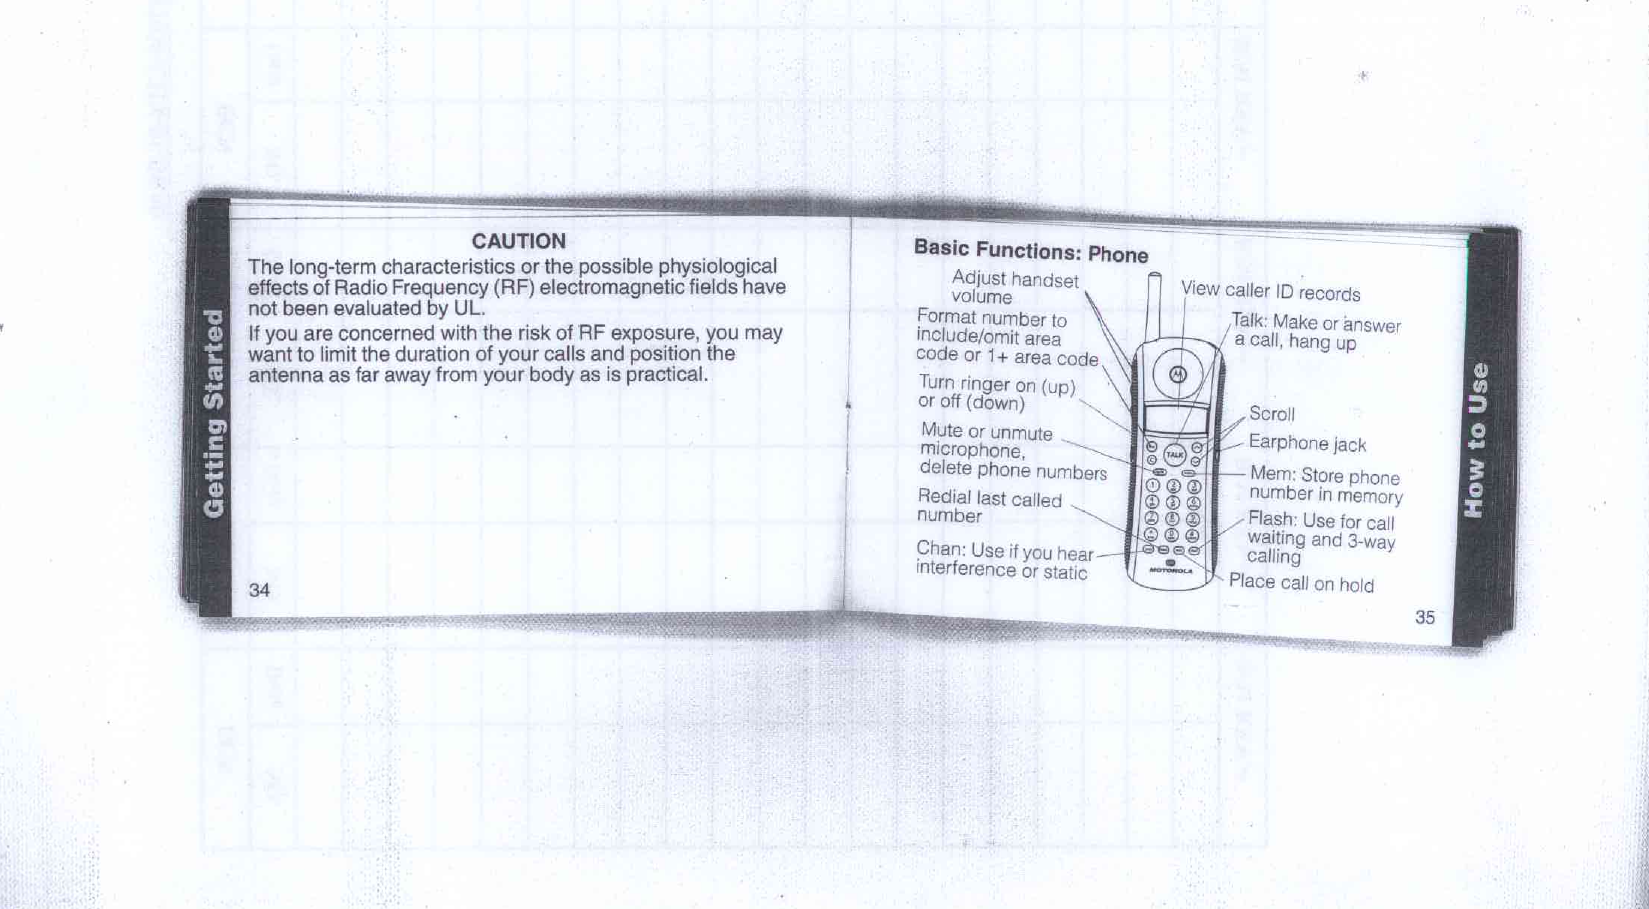 CAUTION
The long-term characteristics or the possible physiological
effects of Radio Frequency (RF) electromagnetic fields have
not been evaluated by UL.
If you are concerned with the risk of RF exposure, you may
want to limit the duration of your calls and position the
antenna as far away from your body as is practical.
34
Getting Started
Basic Functions: Phone
Adjust handset
volume
Format number to
include/omit area
code or 1+ area code
Turn ringer on (up)
or off (down)
Mute or unmute
microphone,
delete phone numbers
Redial last called
number
Chan: Use if you hear
interference or static
TALK
MOTOROLA
View caller ID records
Talk: Make or answer
a call, hang up
Scroll
Earphone jack
Mem: Store phone
number in memory
Flash: Use for call
waiting and 3-way
calling
Place call on hold
35
How to Use